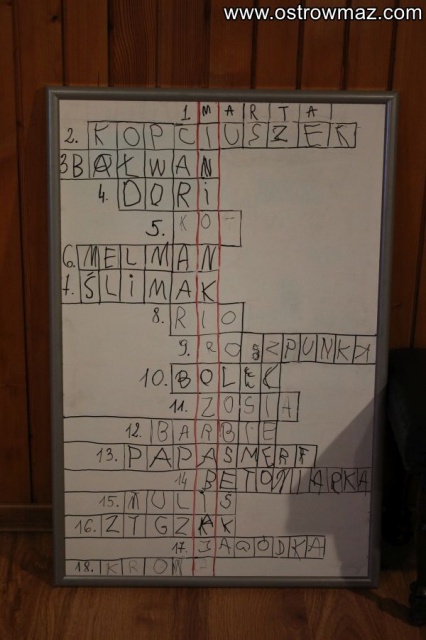 www.ostrowmaz.com
1 MARTA
2. KOPCIUSZEK
3 BAŁWAN
4. DORI
5. KO-
6. MELMAN
7. ŚLIMAK
8. RIO
9.
10. BOLEK
11. ZOSIA
12. BARBIE
13. PAPASMERF
14
15.
16. ZYGZAK
17. JAGÓDKA
18. KRO